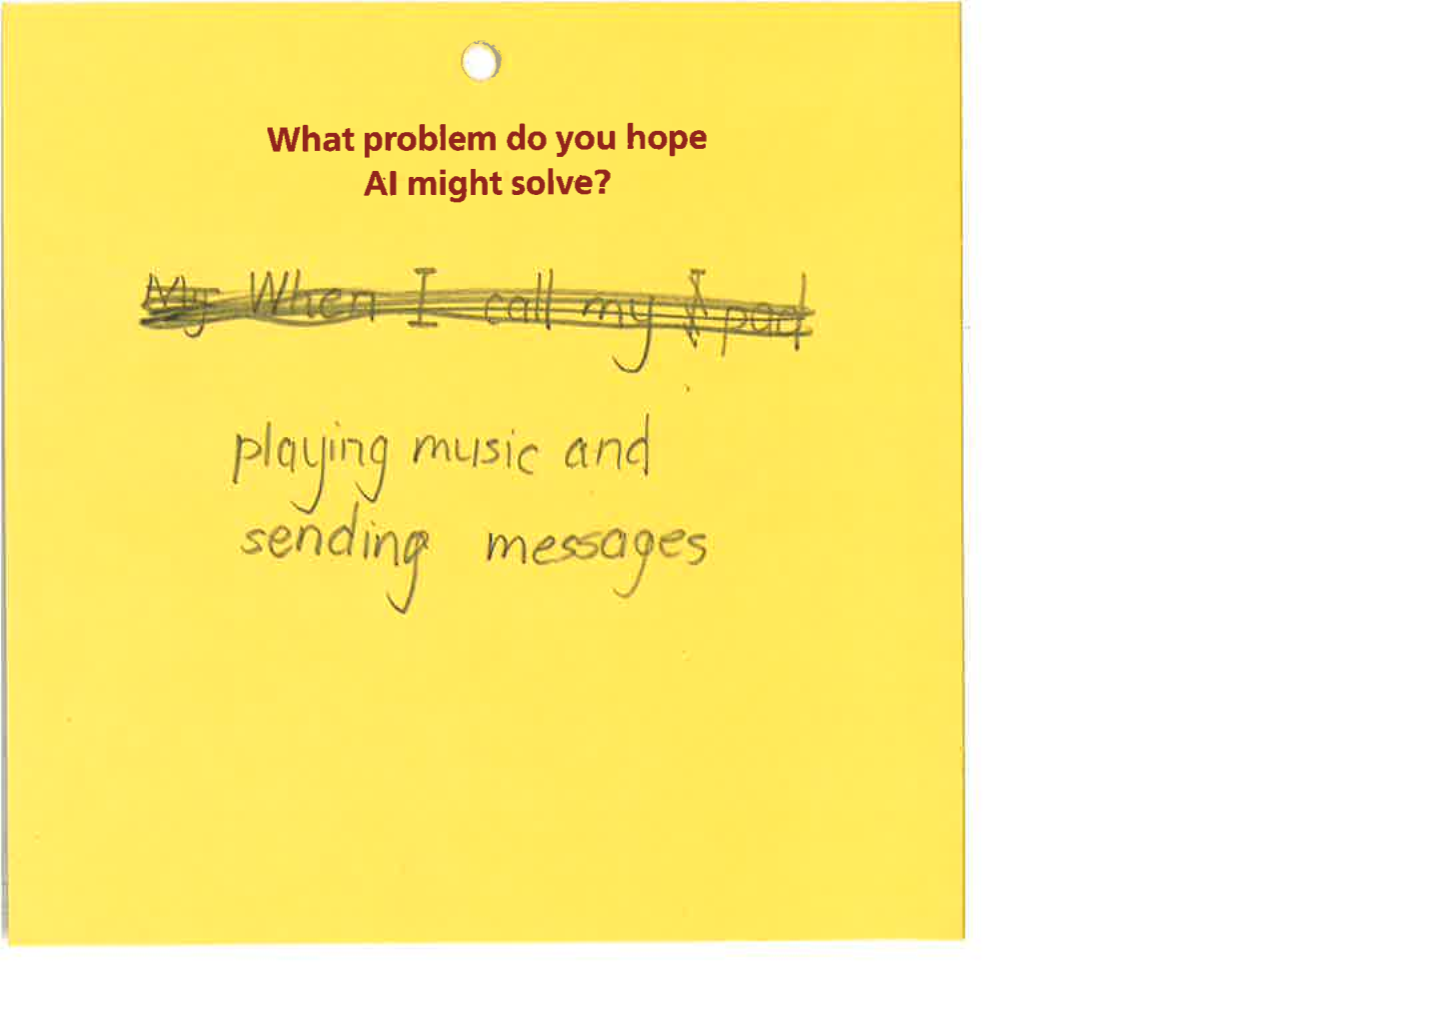 What problem do you hope
AI might solve?
My When I call my Ipad
playing music and
sending messages